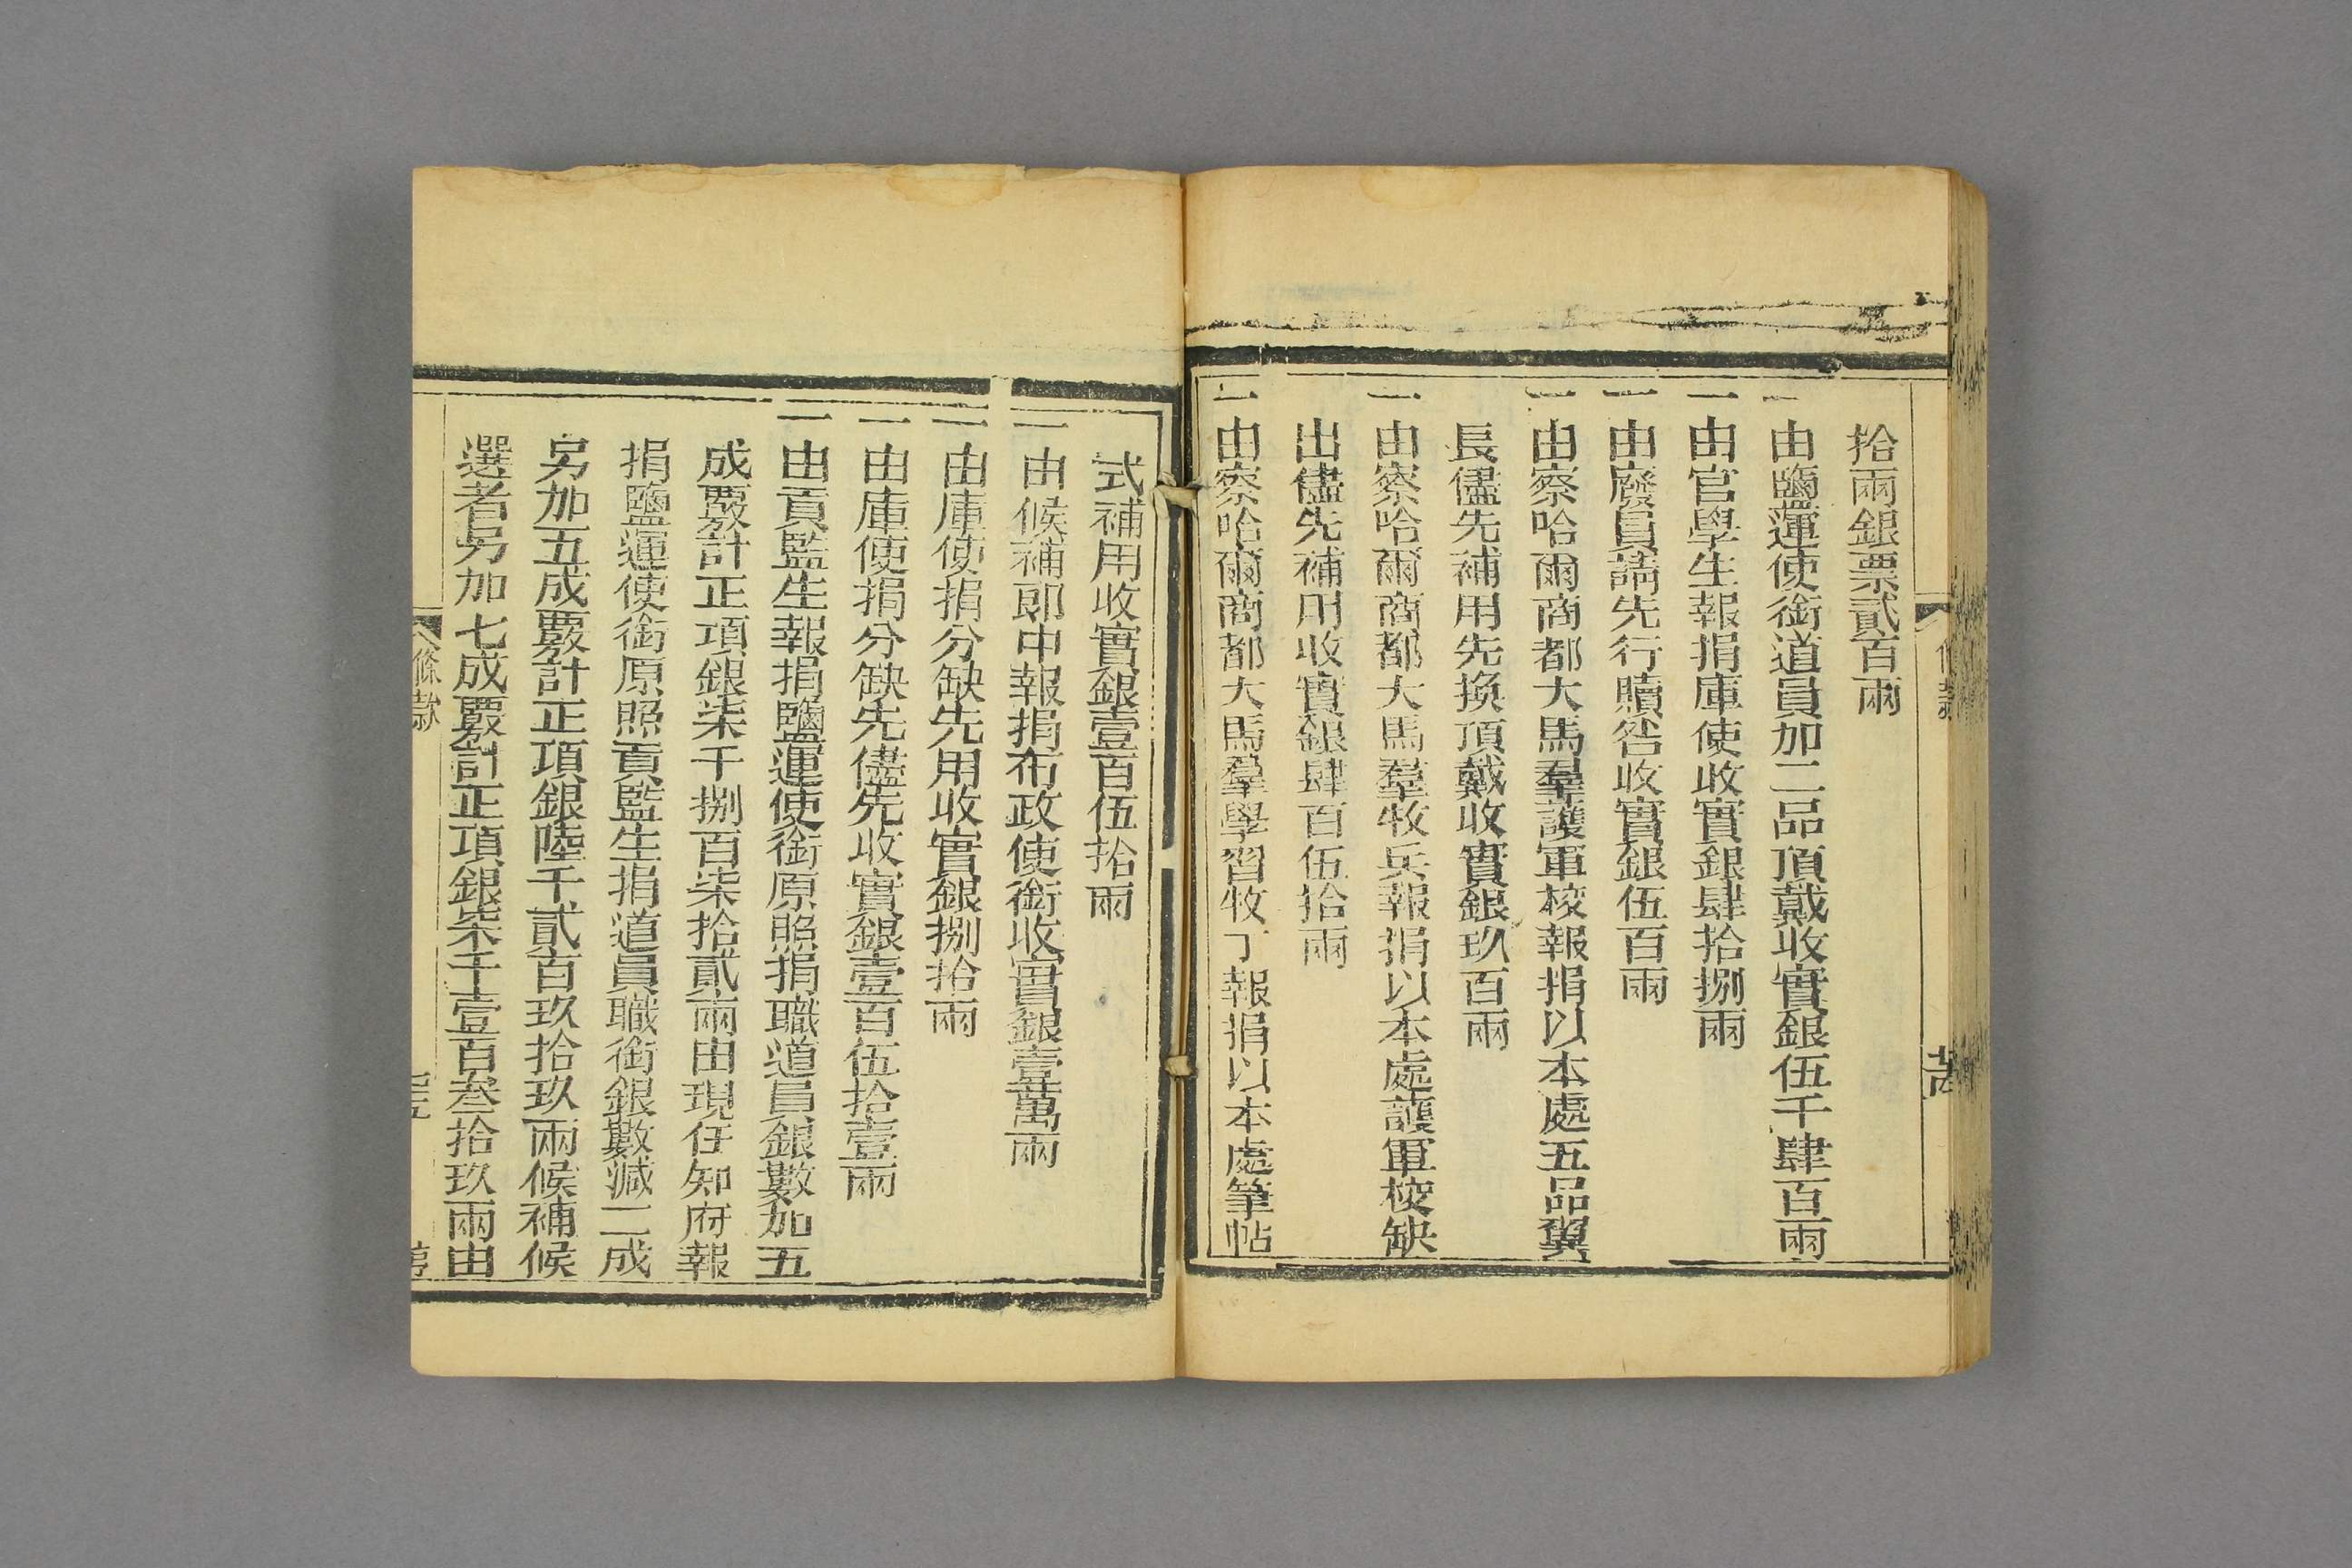 拾兩銀票貳百兩
一由鹽運使銜道員加二品頂戴收實銀伍千肆百兩
一由官學生報捐庫使收實銀肆拾捌兩
一由廢員請先行贖咎收實銀伍百兩
一由察哈爾商都大馬羣護軍校報捐以本處五品翼
長儘先補用先換頂戴收實銀玖百兩
一由察哈爾商都大馬羣牧兵報捐以本處護軍校缺
出儘先補用收實銀肆百伍拾兩
一由察哈爾商都大馬羣學習牧丁報捐以本處筆帖
式補用收實銀壹百伍拾兩
一由候補郎中報捐布政使銜收實銀壹萬兩
一由庫使捐分缺先用收實銀捌拾兩
一由庫使捐分缺先儘先收實銀壹百伍拾壹兩
一由貢監生報捐鹽運使銜原照捐職道員銀數加五
成覈計正項銀柒千捌百柒拾貳兩由現任知府報
捐鹽運使銜原照貢監生捐道員職銜銀數減二成
另加五成覈計正項銀陸千貳百玖拾玖兩候補候
選者另加七成覈計正項銀柒千壹百叁拾玖兩由
條款